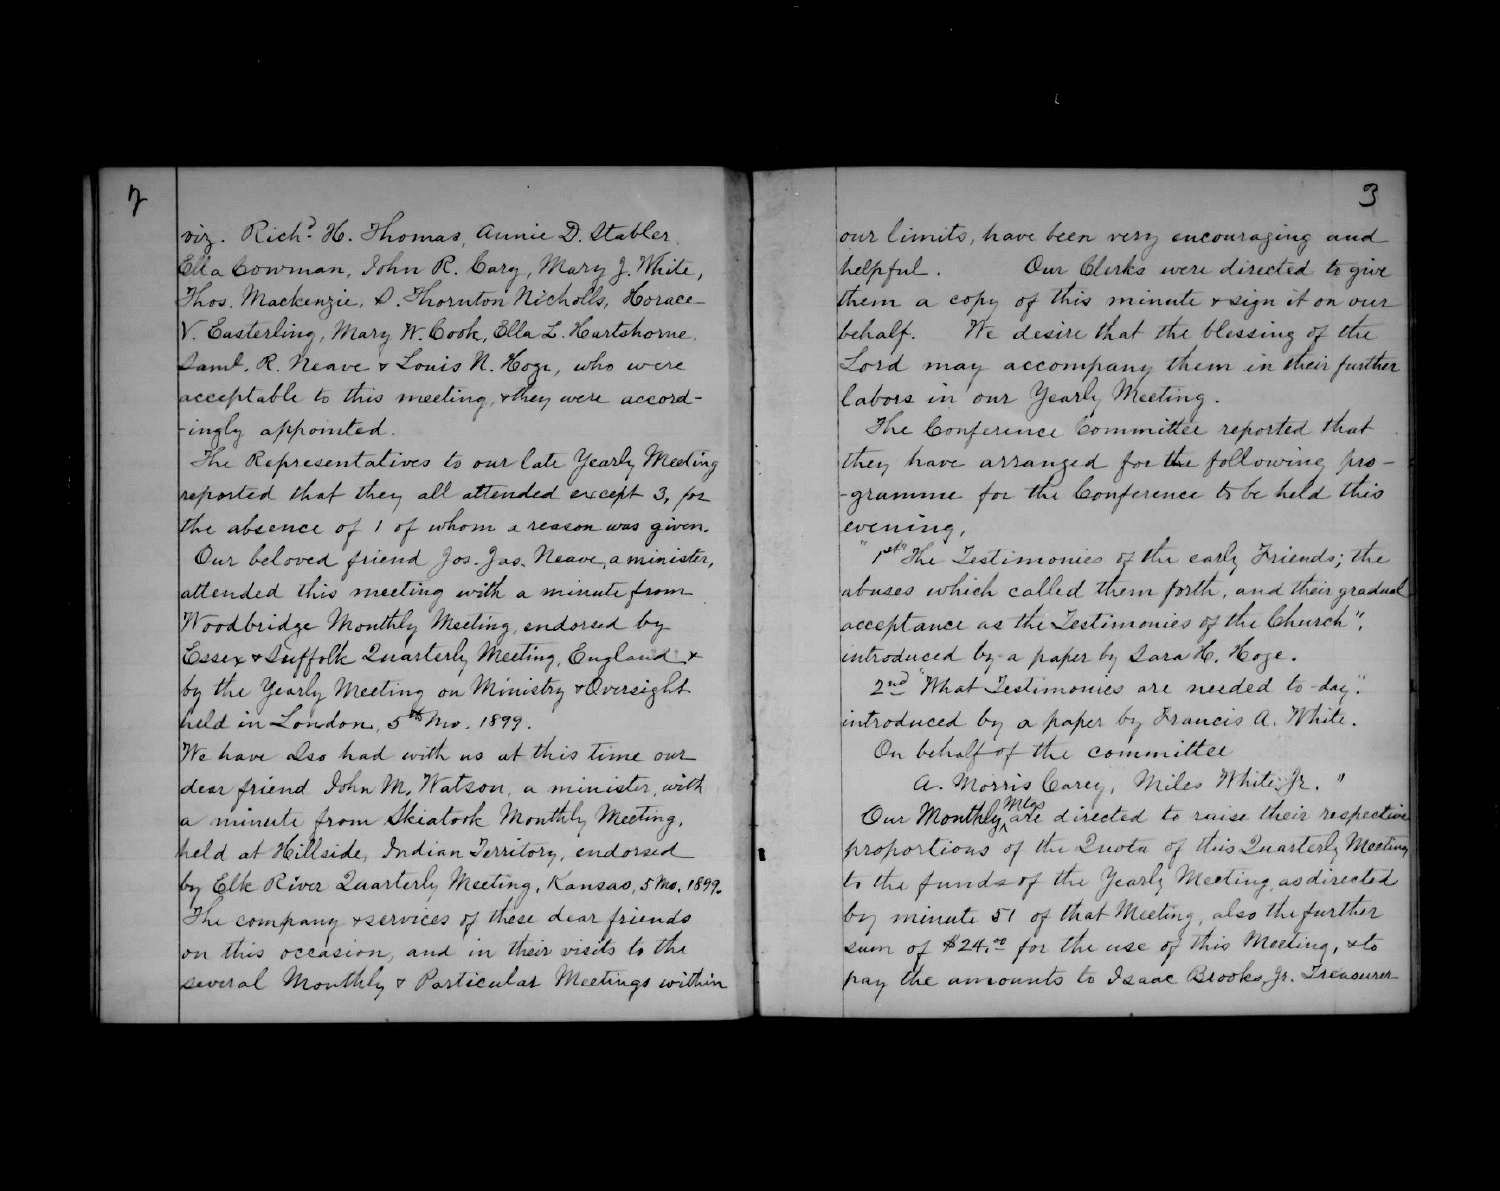 2
viz. Rich.d H. Thomas, Annie D. Stabler,
Ella Cowman, John R. Cary, Mary J. White,
Thos. Mackenzie, D. Thornton Nicholls, Horace
V. Easterling, Mary W. Cook, Ella L. Hartshorne,
Saml. R. Neave & Louis N. Hoge, who were
acceptable to this meeting, & they were accord-
-ingly appointed.
The Representatives to our late Yearly Meeting
reported that they all attended except 3, for
the absence of 1 of whom a reason was given.
Our beloved friend Jos. Jas. Neave, a minister,
attended this meeting with a minute from
Woodbridge Monthly Meeting, endorsed by
Essex & Suffolk Quarterly Meeting, England &
by the Yearly Meeting on Ministry & Oversight
held in London, 5th Mo. 1899.
We have also had with us at this time our
dear friend John M. Watson, a minister, with
a minute from Skiatook Monthly Meeting,
held at Hillside, Indian Territory, endorsed
by Elk River Quarterly Meeting, Kansas, 5 Mo. 1899.
The company & services of these dear friends
on this occasion, and in their visits to the
several Monthly & Particular Meetings within
3
our limits, have been very encouraging and
helpful. Our Clerks were directed to give
them a copy of this minute & sign it on our
behalf. We desire that the blessing of the
Lord may accompany them in their further
labors in our Yearly Meeting.
The Conference Committee reported that
they have arranged for the following pro-
-gramme for the Conference to be held this
evening,
"1st "The Testimonies of the early Friends; the
abuses which called them forth, and their gradual
acceptance as the Testimonies of the Church",
introduced by a paper by Sara H. Hoge.
2nd "What Testimonies are needed to-day".
introduced by a paper by Francis A. White.
On behalf of the committee
A. Morris Carey, Miles White Jr. "
Our Monthly Mtgs are directed to raise their respective
proportions of the Quota of this Quarterly Meeting
to the funds of the Yearly Meeting, as directed
by minute 51 of that Meeting, also the further
sum of $24.00 for the use of this Meeting, & to
pay the amounts to Isaac Brooks, Jr. Treasurer